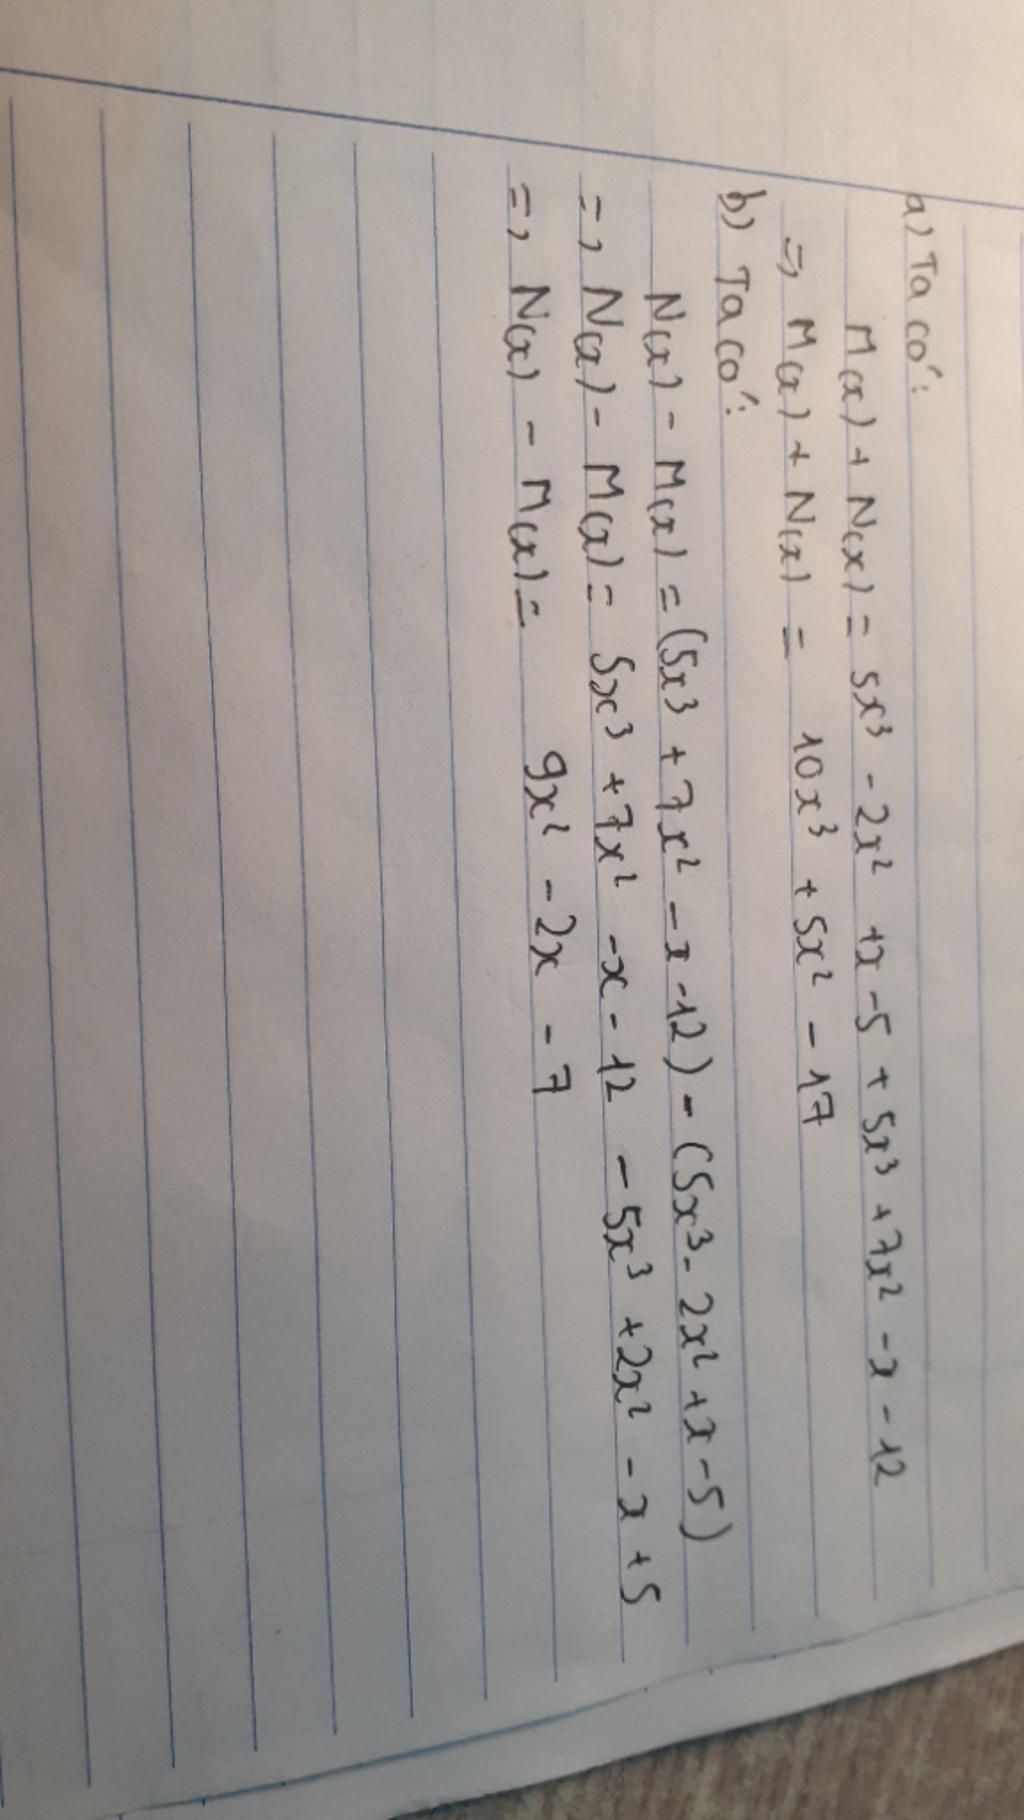 a) Ta có:
M(x) + N(x) = 5x³ - 2x² + x - 5 + 5x³ + 7x² - x - 12
=> M(x) + N(x) = 10x³ + 5x² - 17
b) Ta có:
N(x) - M(x) = (5x³ + 7x² - x - 12) - (5x³ - 2x² + x - 5)
=> N(x) - M(x) = 5x³ + 7x² - x - 12 - 5x³ + 2x² - x + 5
=> N(x) - M(x) = 9x² - 2x - 7